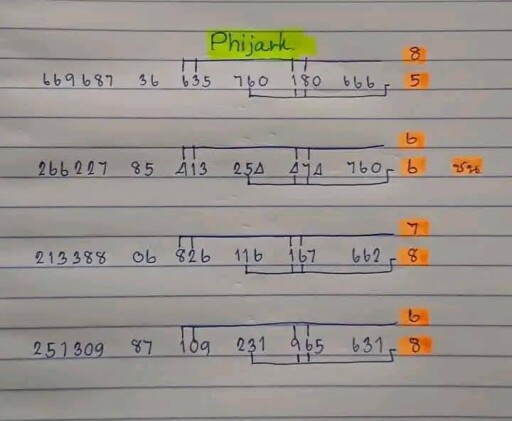 Phijark
8
669687 36 635 760 180 666 5
6
266227 85 413 254 474 760 6 ชน
7
213388 06 826 116 167 662 8
6
251309 87 109 231 965 631 8